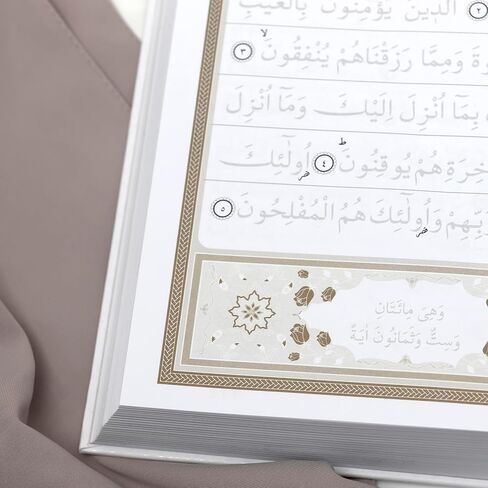 الَّذٖينَ يُؤْمِنُونَ بِالْغَيْبِ ٢
وَمِمَّا رَزَقْنَاهُمْ يُنْفِقُونَۙ ٣
بِمَٓا اُنْزِلَ اِلَيْكَ وَمَٓا اُنْزِلَ
هُمْ يُوقِنُونَؕ ٤ اُو۬لٰٓئِكَ
وَاُو۬لٰٓئِكَ هُمُ الْمُفْلِحُونَ ٥
وَهِىَ مِائَتَانِ
وَسِتٌّ وَثَمَانُونَ اٰيَةً